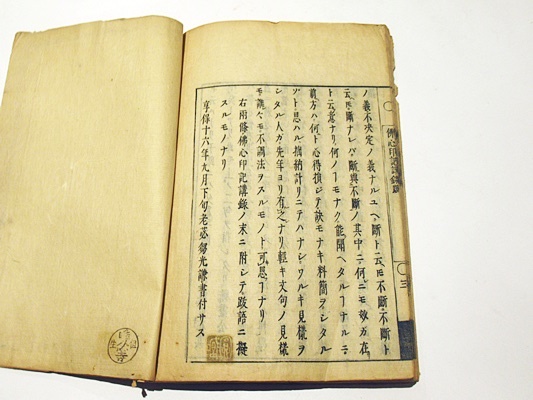 ノ義不決定ノ義ナルユヘ斷ト云𪜈不斷不斷ト
云𪜈斷ナレバ斷與不斷ノ其中ニ何ニモ效方在
ト云意ナリ何ノヿモナク能聞ヘタルヿナルニ
彼方ハ何ト心得損ジテ訣モナキ料簡ヲシタル
ゾト思ハル拙納計リニテハナシワルキ見樣ヲ
シタル人ガ先年ヨリ有之ナリ輕キ文句ノ見樣
モ讒ヘモ不調法ヲスルモノト可思ヿナリ
右兩條佛心印記講錄ノ末ニ附シテ跋語ニ擬
スルモノナリ
享保十六年九月下旬老苾芻光謙書付サス
佛心印記講錄
三